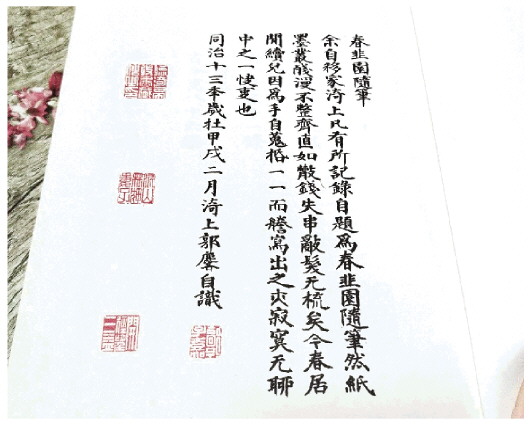 春韭園隨筆
余自移家渏上凡有所記錄自題爲春韭園隨筆然紙
墨叢殘漫不整齊直如散錢失串髮无梳矣今春居
閒續兒因爲手自蒐捃一一而謄寫出之亦寂寞无聊
中之一快叓也
同治十三秊歲在甲戌二月渏上郭麐自識